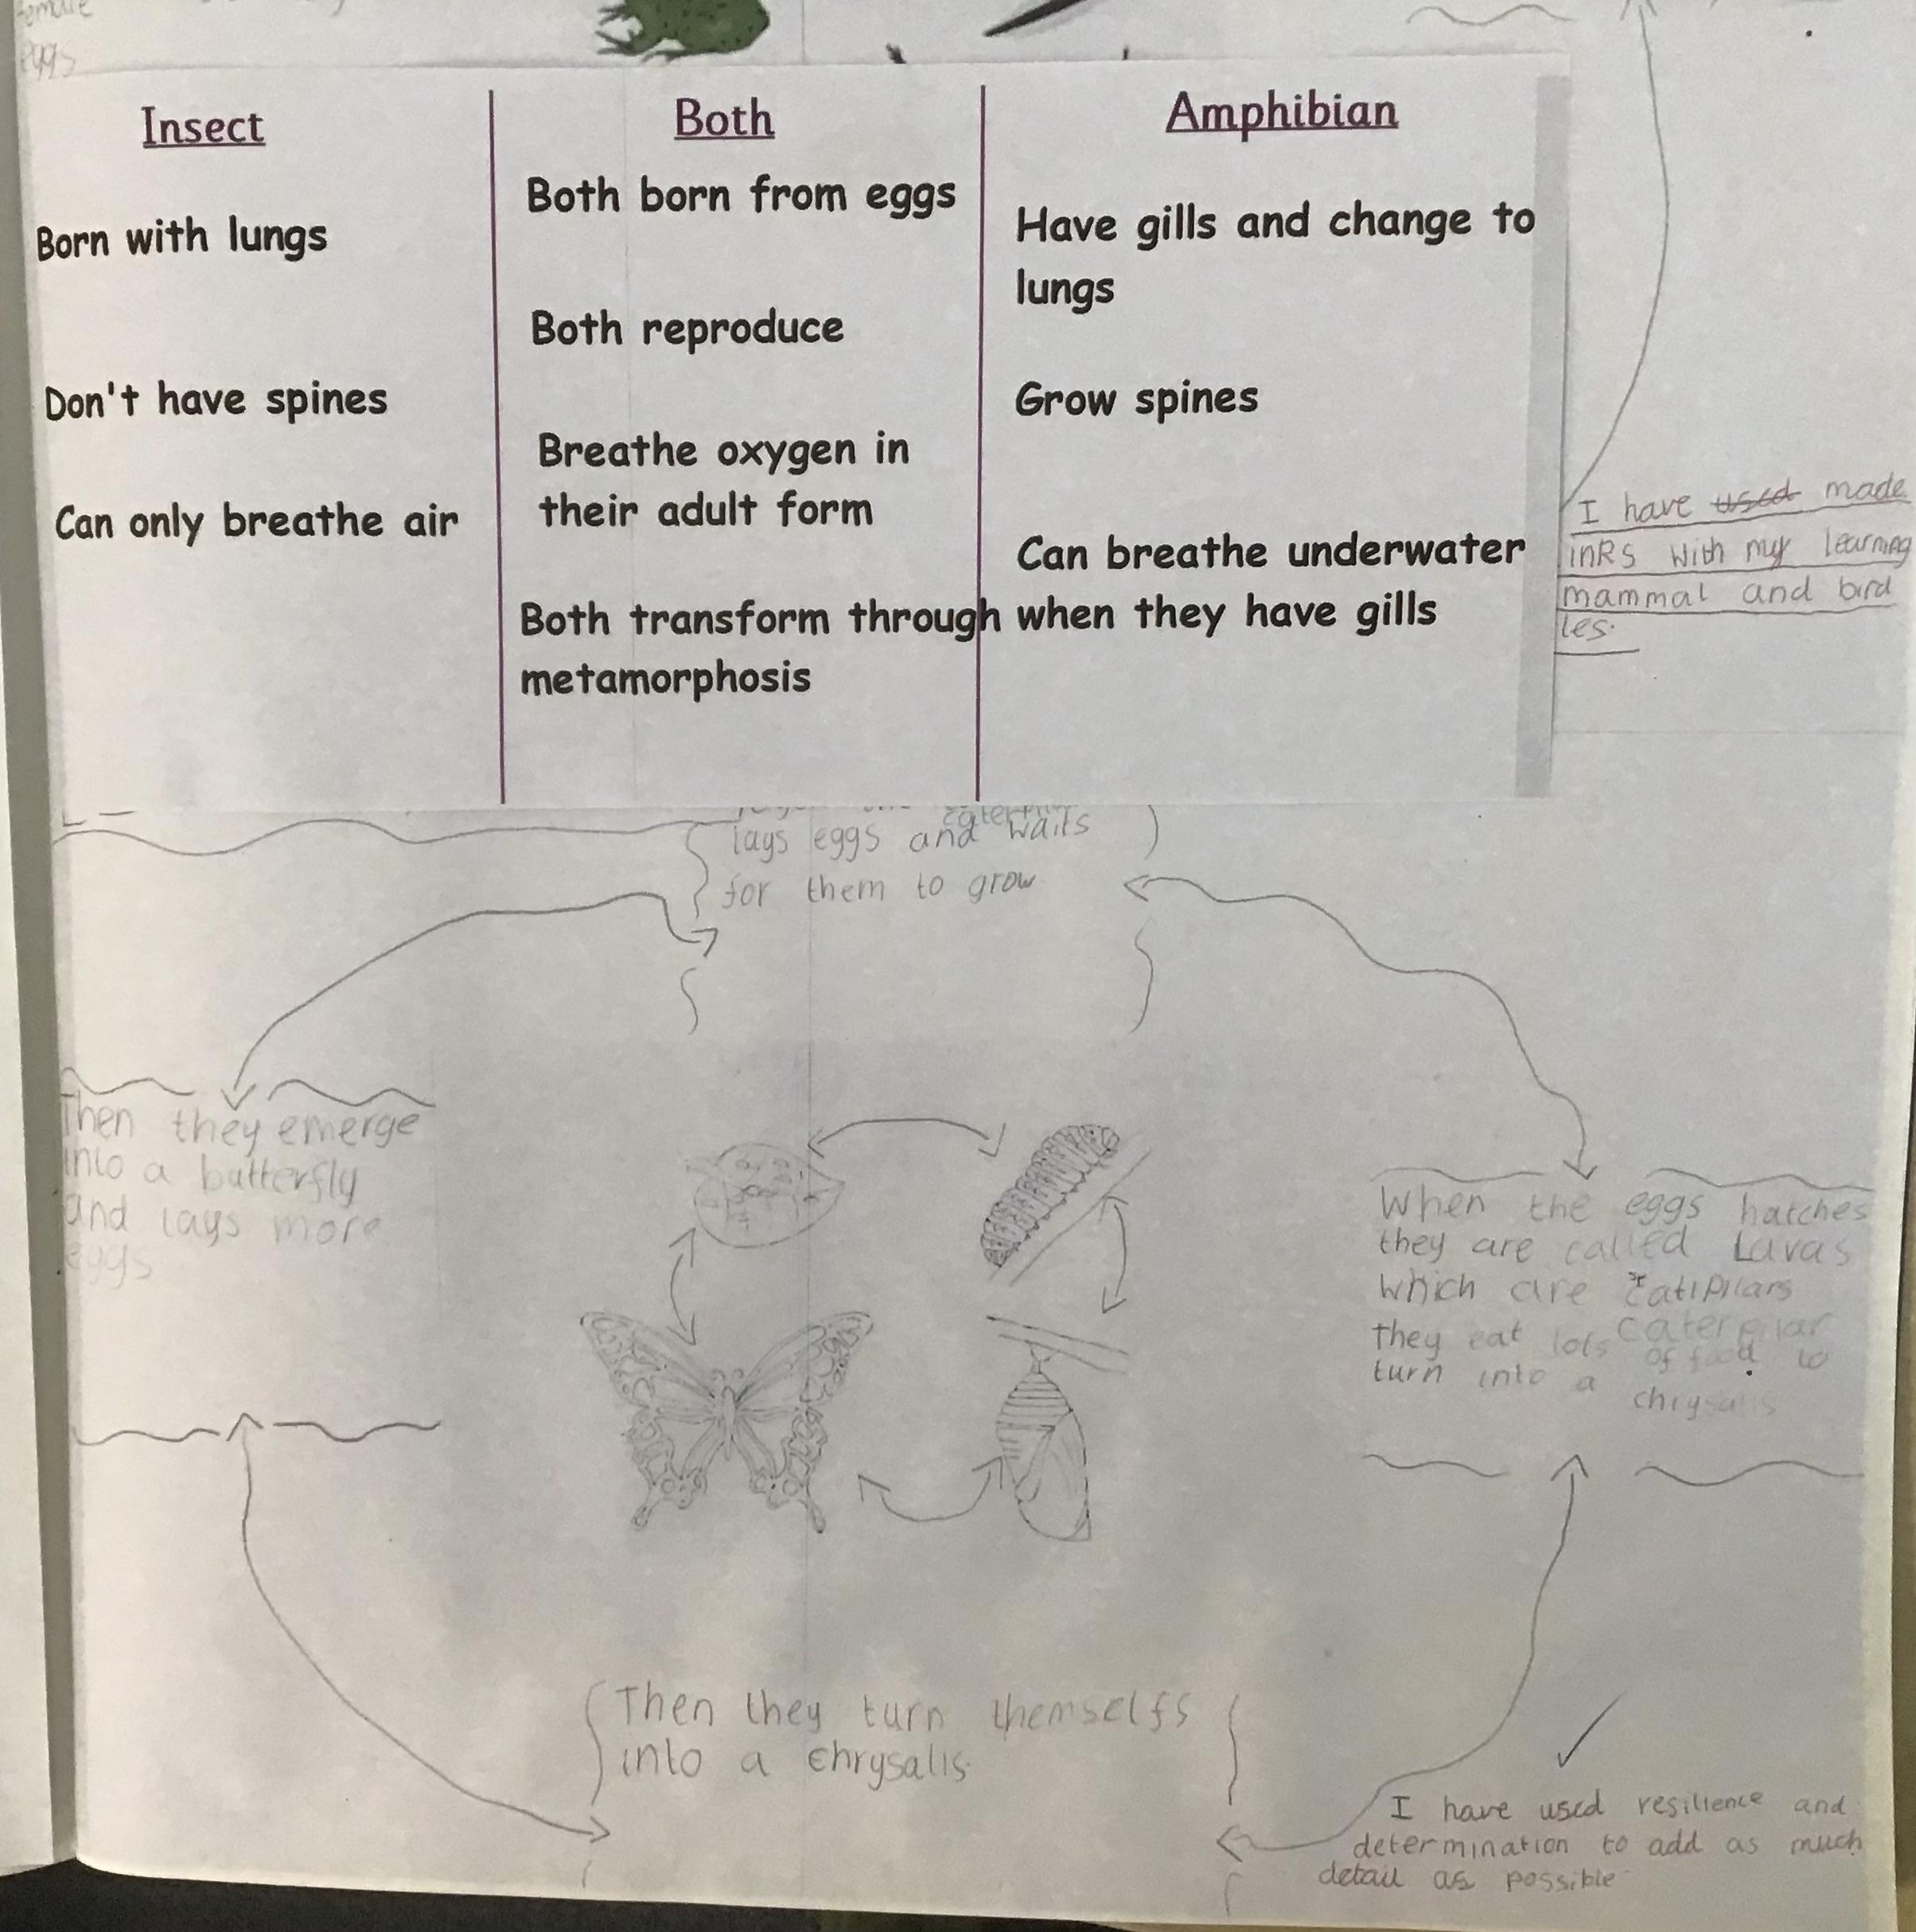 female
eggs
Insect
Born with lungs
Don't have spines
Can only breathe air
Both
Both born from eggs
Both reproduce
Breathe oxygen in
their adult form
Both transform through
metamorphosis
Amphibian
Have gills and change to
lungs
Grow spines
Can breathe underwater
when they have gills
I have used made
inRS with my learning
mammal and bird
les.
lays eggs and waits
for them to grow
Then they emerge
into a butterfly
and lays more
eggs
When the eggs hatches
they are called Lavas
which are catipilars
caterpilar
they eat lots of food to
turn into a chrysalis
Then they turn themselfs
into a chrysalis.
I have used resilience and
determination to add as much
detail as possible